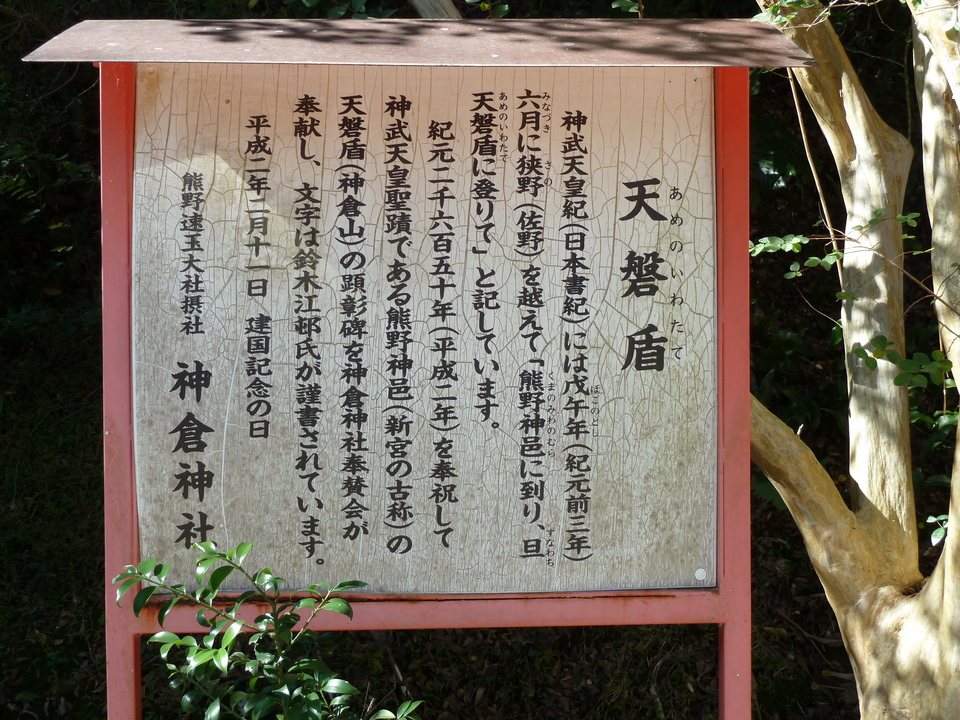 天磐盾
あめのいわたて
神武天皇紀(日本書紀)には戊午年(紀元前三年)
つちのえうまのとし
六月に狭野(佐野)を越えて「熊野神邑に到り、旦
みなづき さの くまのみわのむら すなわち
天磐盾に登りて」と記しています。
あめのいわたて
紀元二千六百五十年(平成二年)を奉祝して
神武天皇聖蹟である熊野神邑(新宮の古称)の
天磐盾(神倉山)の顕彰碑を神倉神社奉賛会が
奉献し、文字は鈴木江邨氏が謹書されています。
平成二年二月十一日 建国記念の日
熊野速玉大社摂社 神倉神社